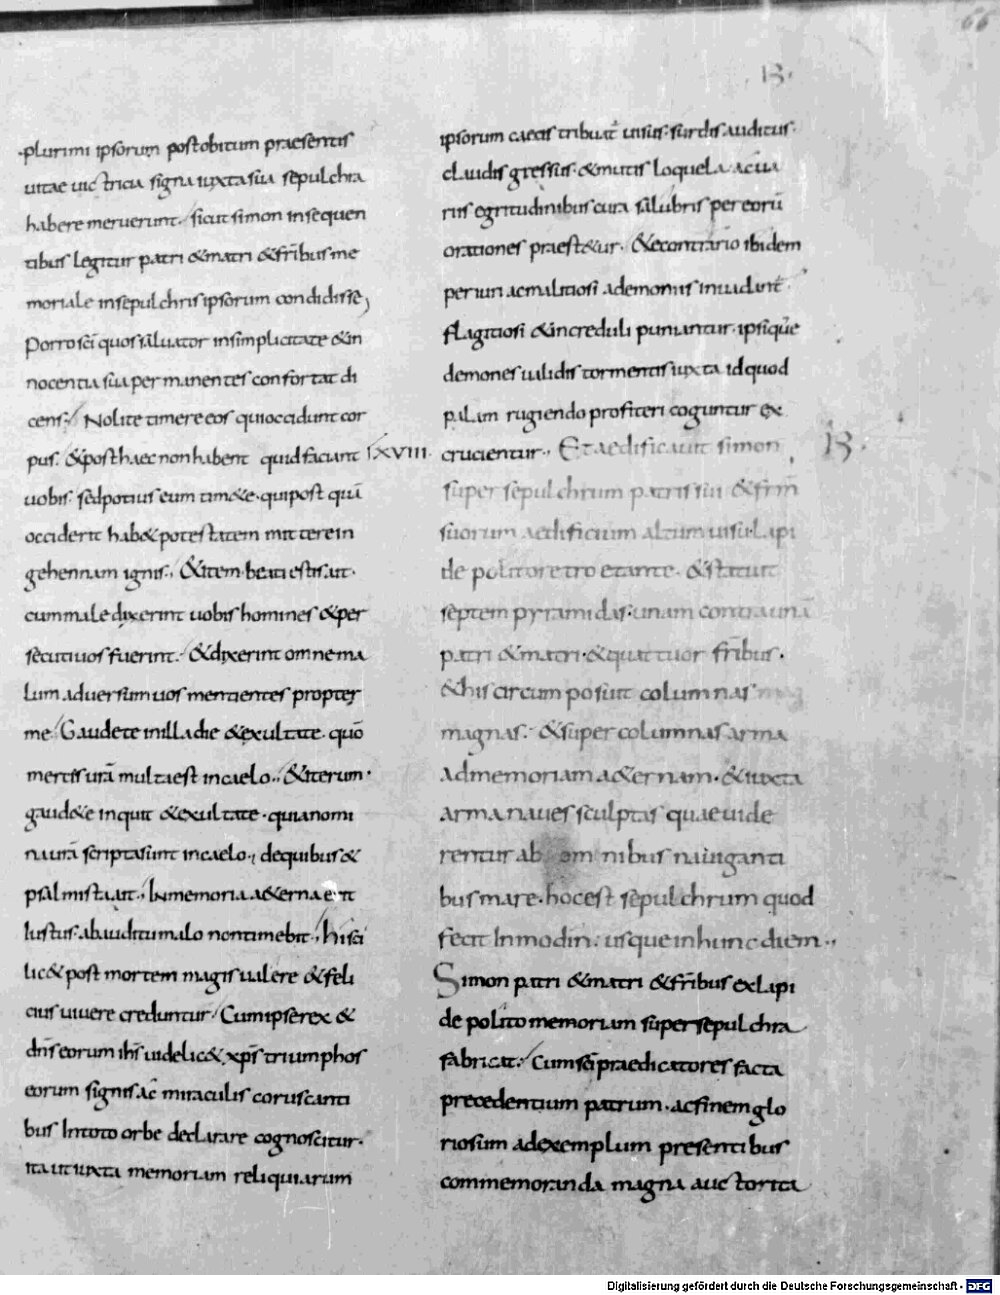 66
B.
plurimi ipsorum post obitum praesentis
uitae uictricia signa iuxta sua sepulchra
habere meruerunt. sicut simon insequen
tibus legitur patri & matri & frībus me
moriale insepulchris ipsorum condidisse,
Porro sc̄i quos saluator insimplicitate & in
nocentia sua permanentes confortat di
cens; Nolite timere eos qui occidunt cor
pus. & post haec non habent quid faciant
uobis. sed potius eum tim&e. qui post quā
occiderit hab& potestatem mittere in
gehennam ignis., & item. beati estis. ut.
cum male dixerint uobis homines & per
secuti uos fuerint. & dixerint omne ma
lum aduersum uos mentientes propter
me. Gaudete in illa die & exultate. quō
merces urā multa est in caelo.. & iterum.
gaud&e inquit & exultate. quia nomi
na urā scripta sunt in caelo., de quibus &
psalmista ait., In memoria a&erna e᷑t
Iustus. ab auditu malo non timebit., hi sci
lic& post mortem magis ualere & feli
cius uiuere creduntur. Cum ipse rex &
dn̄s eorum ih̄s uidelic& xp̄s triumphos
eorum signis ac miraculis coruscanti
bus In toto orbe declarare cognoscitur.
ita ut iuxta memoriam reliquiarum
ipsorum caecis tribuat uisus. surdis auditus.
claudis gressus. & mutis loquela. ac ua
riis egritudinibus cura salubris per eorū
orationes praest&ur. & e contrario ibidem
periuri ac malitiosi a demoniis inuadunt
flagitiosi & increduli puniantur. ipsique
demones ualidis tormentis iuxta id quod
palam rugiendo profiteri coguntur ex
lxviii. crucientur., Et aedificauit simon B.
super sepulchrum patris sui & frm̄
suorum aedificium altum uisu. Lapi
de polito retro et ante. & statuit
septem pyramidas. unam contra unā
patri & matri. & quattuor frībus.
& his circum posuit columnas
magnas. & super columnas arma
ad memoriam a&ernam. & iuxta
arma naues sculptas quae uide
rentur ab omnibus nauiganti
bus mare. hoc est sepulchrum quod
fecit In modin. usque in hunc diem..,
Simon patri & matri & frībus ex lapi
de polito memoriam super sepulchra
fabricat. Cum sc̄i praedicatores facta
precedentium patrum. ac finem glo
riosum ad exemplum presentibus
commemoranda magna auctorita
Digitalisierung gefördert durch die Deutsche Forschungsgemeinschaft - DFG